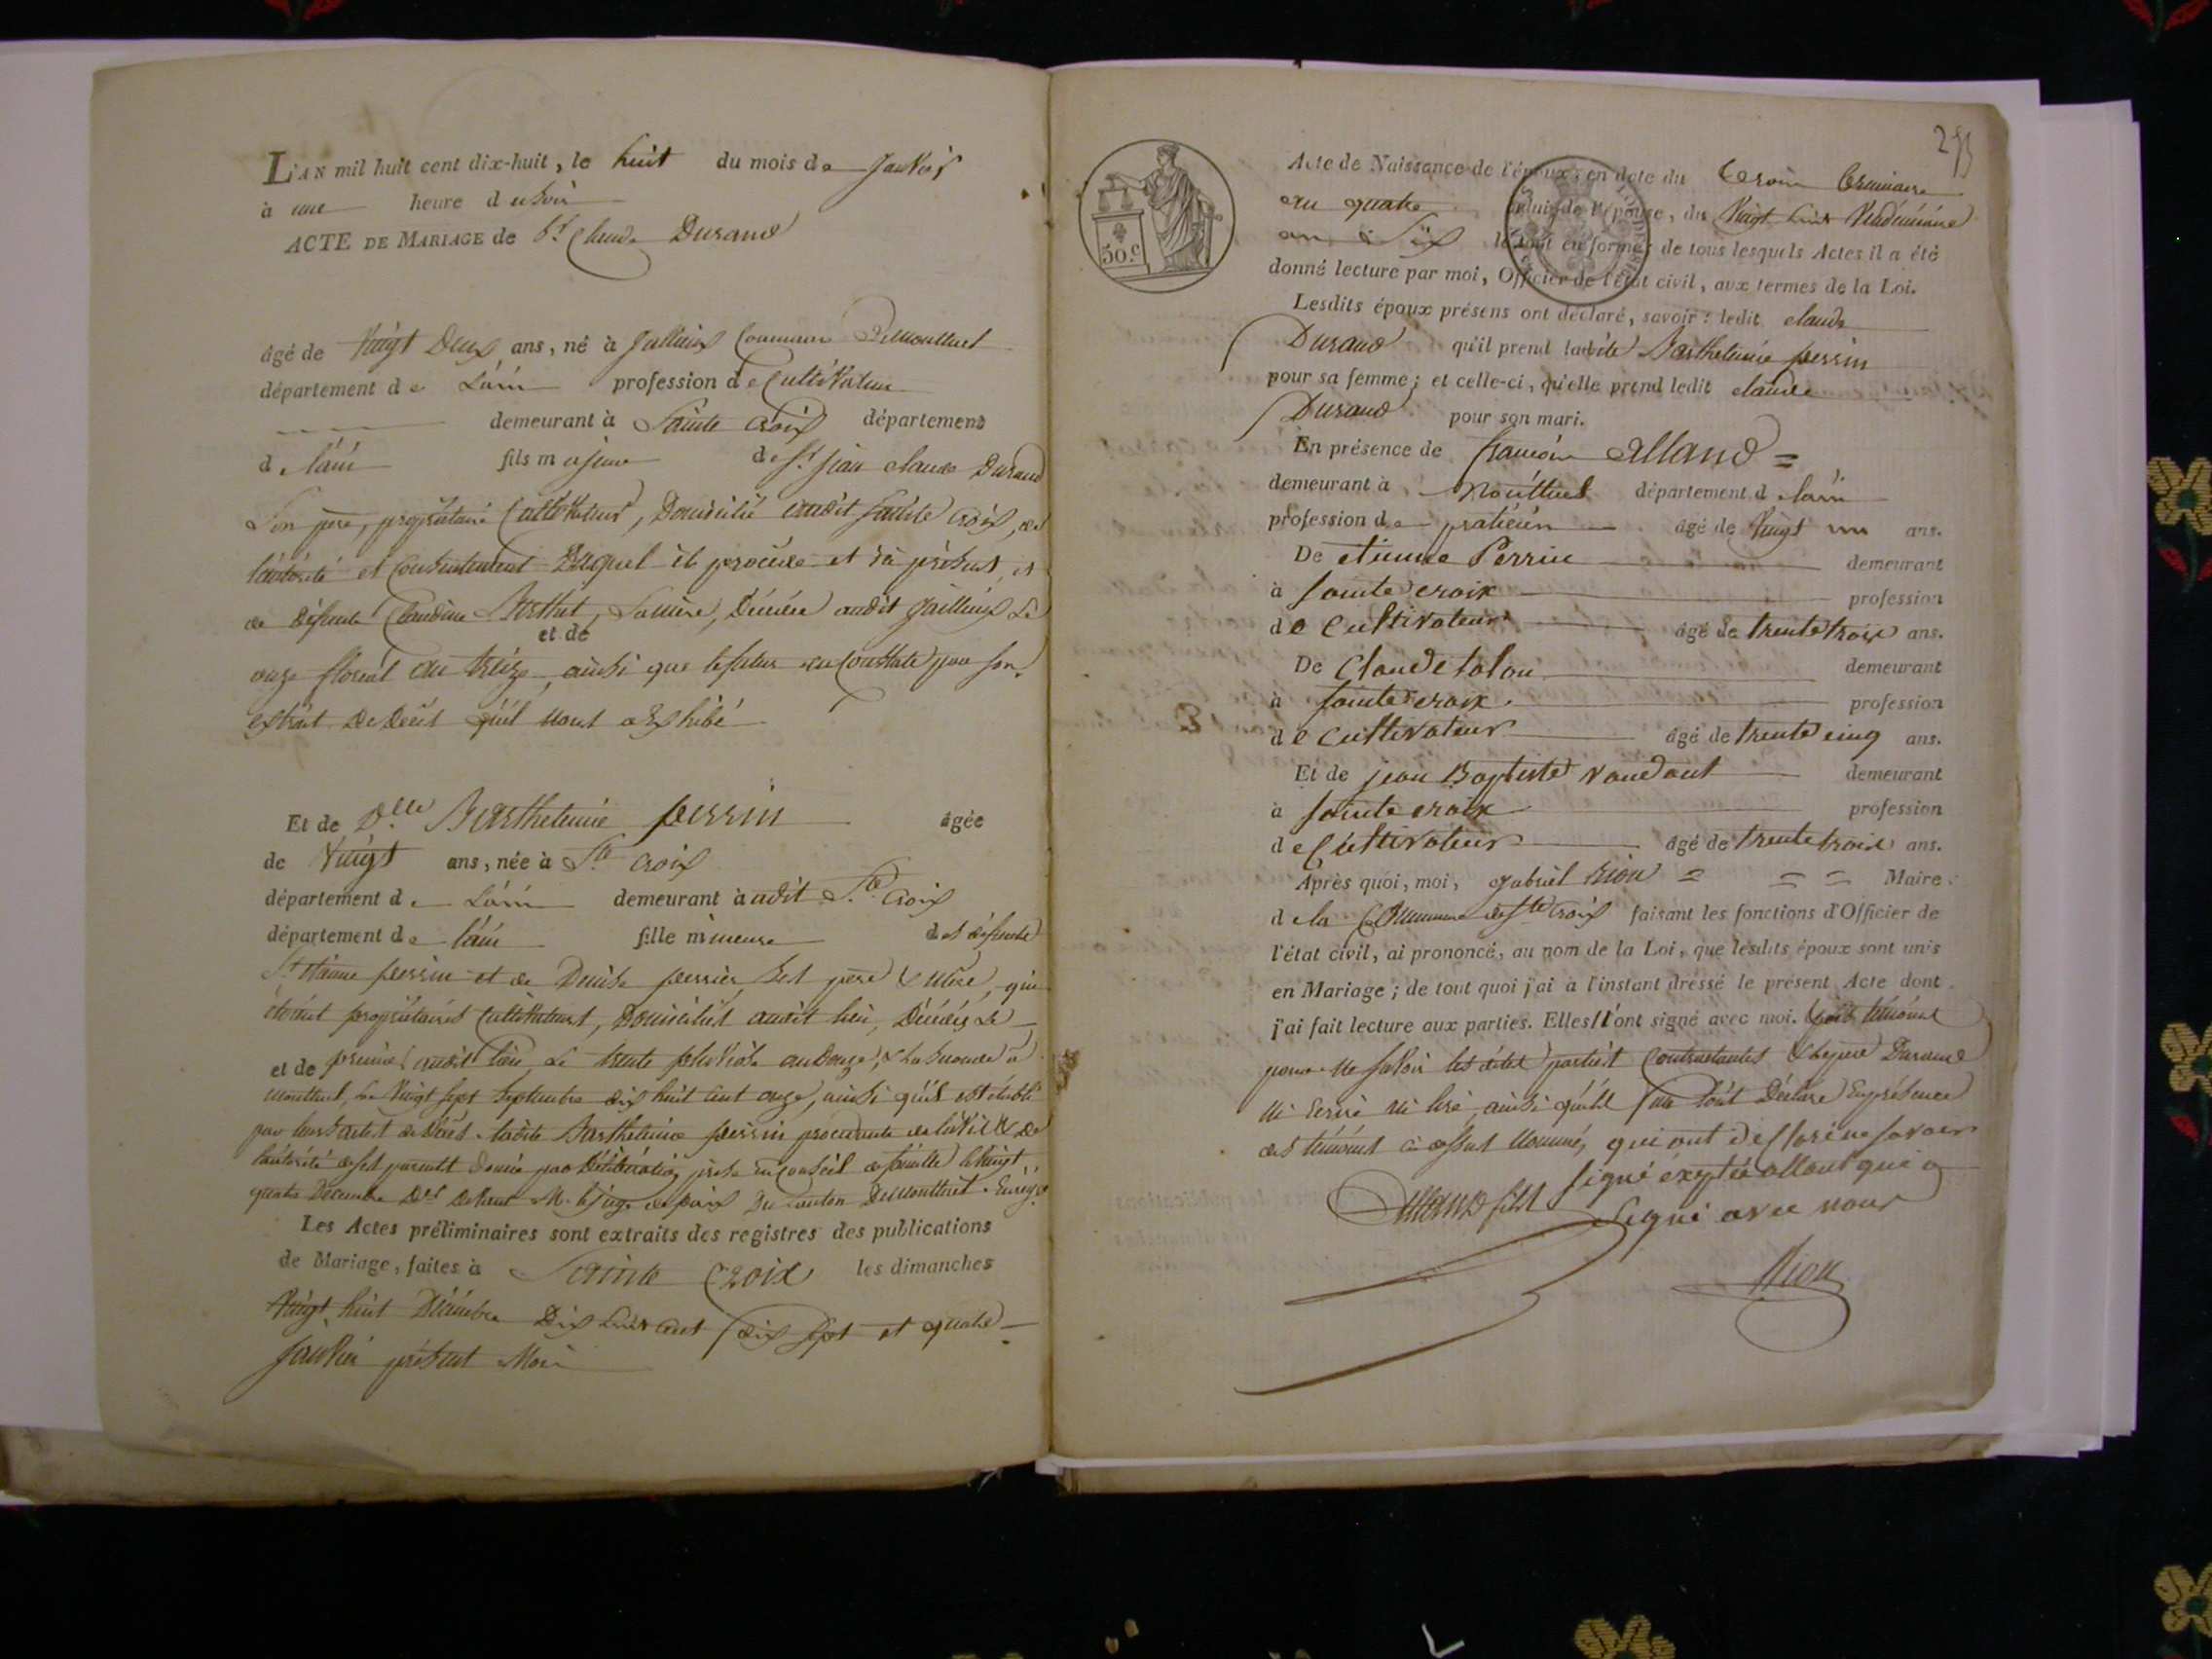 L'AN mil huit cent dix-huit, le huit du mois de janvier
à une heure du soir
ACTE DE MARIAGE de Sr. Claude Durand
âgé de Vingt Deux ans, né à Jailleux Commune De montluel
département de L'ain profession de Cultivateur
demeurant à Sainte Croix département
de l'ain fils majeur de Sr. jean claude Durand
Son père, propriétaire Cultivateur, Domicilié audit Sainte Croix, de
l'autorité et Consentement Duquel il procède et ici présent, et
de défunte Claudine Berthet, Sa mère, Décédée audit Jailleux Le
et de
onze floréal an treize, ainsi que le futur en Constate par son
extrait De Décès qu'il nous a Exhibé
Et de Dlle Barthelemie perrin âgée
de Vingt ans, née à Ste. Croix
département de L'ain demeurant à audit Ste. Croix
département de l'ain fille mineure des défunts
Sr. étienne perrin et de Denise perrier Ses père & Mère, qui
étoient propriétaires Cultivateurs, Domiciliés audit lieu, Décédés Le
et de premier audit lieu Le trente pluviose an Douze, & la Seconde à
montluel, Le Vingt Sept Septembre dix huit Cent onze, ainsi qu'il est établi
par leurs actes de Décès. ladite Barthelemie perrin procédante de l'avis & de
l'autorité de ses parents donnée par Délibération prise en conseil de famille le Vingt
quatre Décembre Der. Devant M. le juge de paix Du canton De montluel. Enreg.
Les Actes préliminaires sont extraits des registres des publications
de Mariage, faites à Sainte Croix les dimanches
Vingt huit Décembre Dix huit Cent dix Sept et quatre
Janvier présent Mois
295
50.c
Acte de Naissance de l'époux, en date du trois
an quatre celui de l'épouse, du Vingt huit Vendémiaire
an Six le tout en forme; de tous lesquels Actes il a été
donné lecture par moi, Officier de l'état civil, aux termes de la Loi.
Lesdits époux présens ont déclaré, savoir: ledit claude
Durand qu'il prend ladite Barthelemie perrin
pour sa femme; et celle-ci, qu'elle prend ledit claude
Durand pour son mari.
En présence de françois alland =
demeurant à Montluel département de l'ain
profession de praticien âgé de Vingt un ans.
De etienne Perrin demeurant
à sainte croix profession
de Cultivateur âgé de trente trois ans.
De Claude talon demeurant
à sainte croix profession
de Cultivateur âgé de trente cinq ans.
Et de jean Baptiste vaudant demeurant
à sainte croix profession
de Cultivateur âgé de trente trois ans.
Après quoi, moi, gabriel Rion = = = Maire
de la Commune de Ste Croix faisant les fonctions d'Officier de
l'état civil, ai prononcé, au nom de la Loi, que lesdits époux sont unis
en Mariage; de tout quoi j'ai à l'instant dressé le présent Acte dont
j'ai fait lecture aux parties. Elles l'ont signé avec moi. témoins
pour Ne Savoir les dites parties Contractantes & le père Durand
Ni Ecrire Ni lire, ainsi qu'ils l'ont Déclaré En présence
des témoins ci dessus Nommés, qui ont desclaré ne savoir
signé éxeptée alland qui a
alland fils signé avec nous
Rion